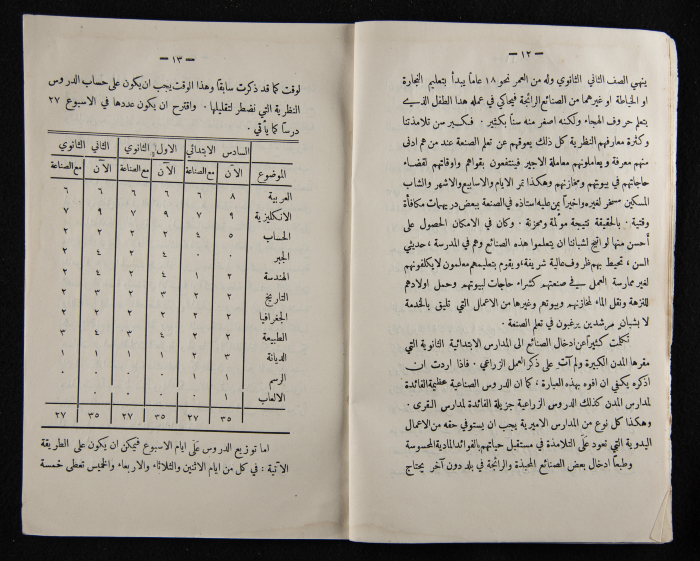 — ١٢ —
ينهي الصف الثاني الثانوي وله من العمر نحو ١٨ عاماً يبدأ بتعليم النجارة
او الخياطة او غيرهما من الصنائع الرائجة فيحاكي في عمله هذا الطفل الذي
يتعلم حروف الهجاء ولكنه اصغر منه سناً بكثير . فكبر سن تلامذتنا
وكثرة معارفهم النظرية كل ذلك يعوقهم عن تعلم الصنعة عند من هم ادنى
منهم معرفة ويعاملونهم معاملة الاجير فينتفعون بقواهم واوقاتهم لقضاء
حاجاتهم في بيوتهم ومخازنهم وهكذا تمر الايام والاسابيع والاشهر والشاب
المسكين مسخر لغيره واخيراً يمن عليه استاذه في الصنعة ببعض دريهمات مكافأة
وقتية . بالحقيقة نتيجة مؤلمة ومحزنة . وكان في الامكان الحصول على
أحسن منها لو اتيح لشباننا ان يتعلموا هذه الصنائع وهم في المدرسة ، حديثي
السن ، تحيط بهم ظروف عالية شريفة ، ويقوم بتعليمهم معلمون لا يكلفونهم
لغير ممارسة العمل في صنعتهم كشراء حاجات لبيوتهم وحمل اولادهم
للنزهة ونقل الماء لمخازنهم وبيوتهم وغيرها من الاعمال التي تليق بالخدمة
لا بشبان مرشدين يرغبون في تعلم الصنعة
تكلمت كثيراً عن ادخال الصنائع الى المدارس الابتدائية الثانوية التي
مقرها المدن الكبيرة ولم آت على ذكر العمل الزراعي . فاذا اردت ان
اذكره يكفي ان افوه بهذه العبارة ، كما ان الدروس الصناعية عظيمة الفائدة
لمدارس المدن كذلك الدروس الزراعية جزيلة الفائدة لمدارس القرى .
وهكذا كل نوع من المدارس الاميرية يجب ان يستوفي حقه من الاعمال
اليدوية التي تعود على التلامذة في مستقبل حياتهم بالفوائد المادية المحسوسة
وطبعاً ادخال بعض الصنائع المحبذة والرائجة في بلد دون آخر يحتاج
— ١٣ —
لوقت كما قد ذكرت سابقاً وهذا الوقت يجب ان يكون على حساب الدروس
النظرية التي نضطر لتقليلها . واقترح ان يكون عددها في الاسبوع ٢٧
درساً كما يأتي .
السادس الابتدائي الاول الثانوي الثاني الثانوي
الموضوع الآن مع الصناعة الآن مع الصناعة الآن مع الصناعة
العربية ٨ ٦ ٦ ٦ ٦ ٦
الانكليزية ٩ ٧ ٩ ٧ ٩ ٧
الحساب ٥ ٤ ٢ ٢ ٢ ٢
الجبر ٠ ٠ ٤ ٢ ٤ ٢
الهندسة ٢ ١ ٤ ٢ ٤ ٢
التاريخ ٢ ٢ ٣ ٢ ٣ ٢
الجغرافيا ٢ ٢ ٢ ٢ ٢ ٢
الطبيعة ٢ ٢ ٤ ٣ ٤ ٣
الديانة ٣ ٢ ١ ١ ١ ١
الرسم ١ ١ ٠ ٠ ٠ ٠
الالعاب ١ ٠ ٠ ٠ ٠ ٠
٣٥ ٢٧ ٣٥ ٢٧ ٣٥ ٢٧
اما توزيع الدروس على ايام الاسبوع فيمكن ان يكون على الطريقة
الآتية : في كل من ايام الاثنين والثلاثاء والاربعاء والخميس تعطى خمسة